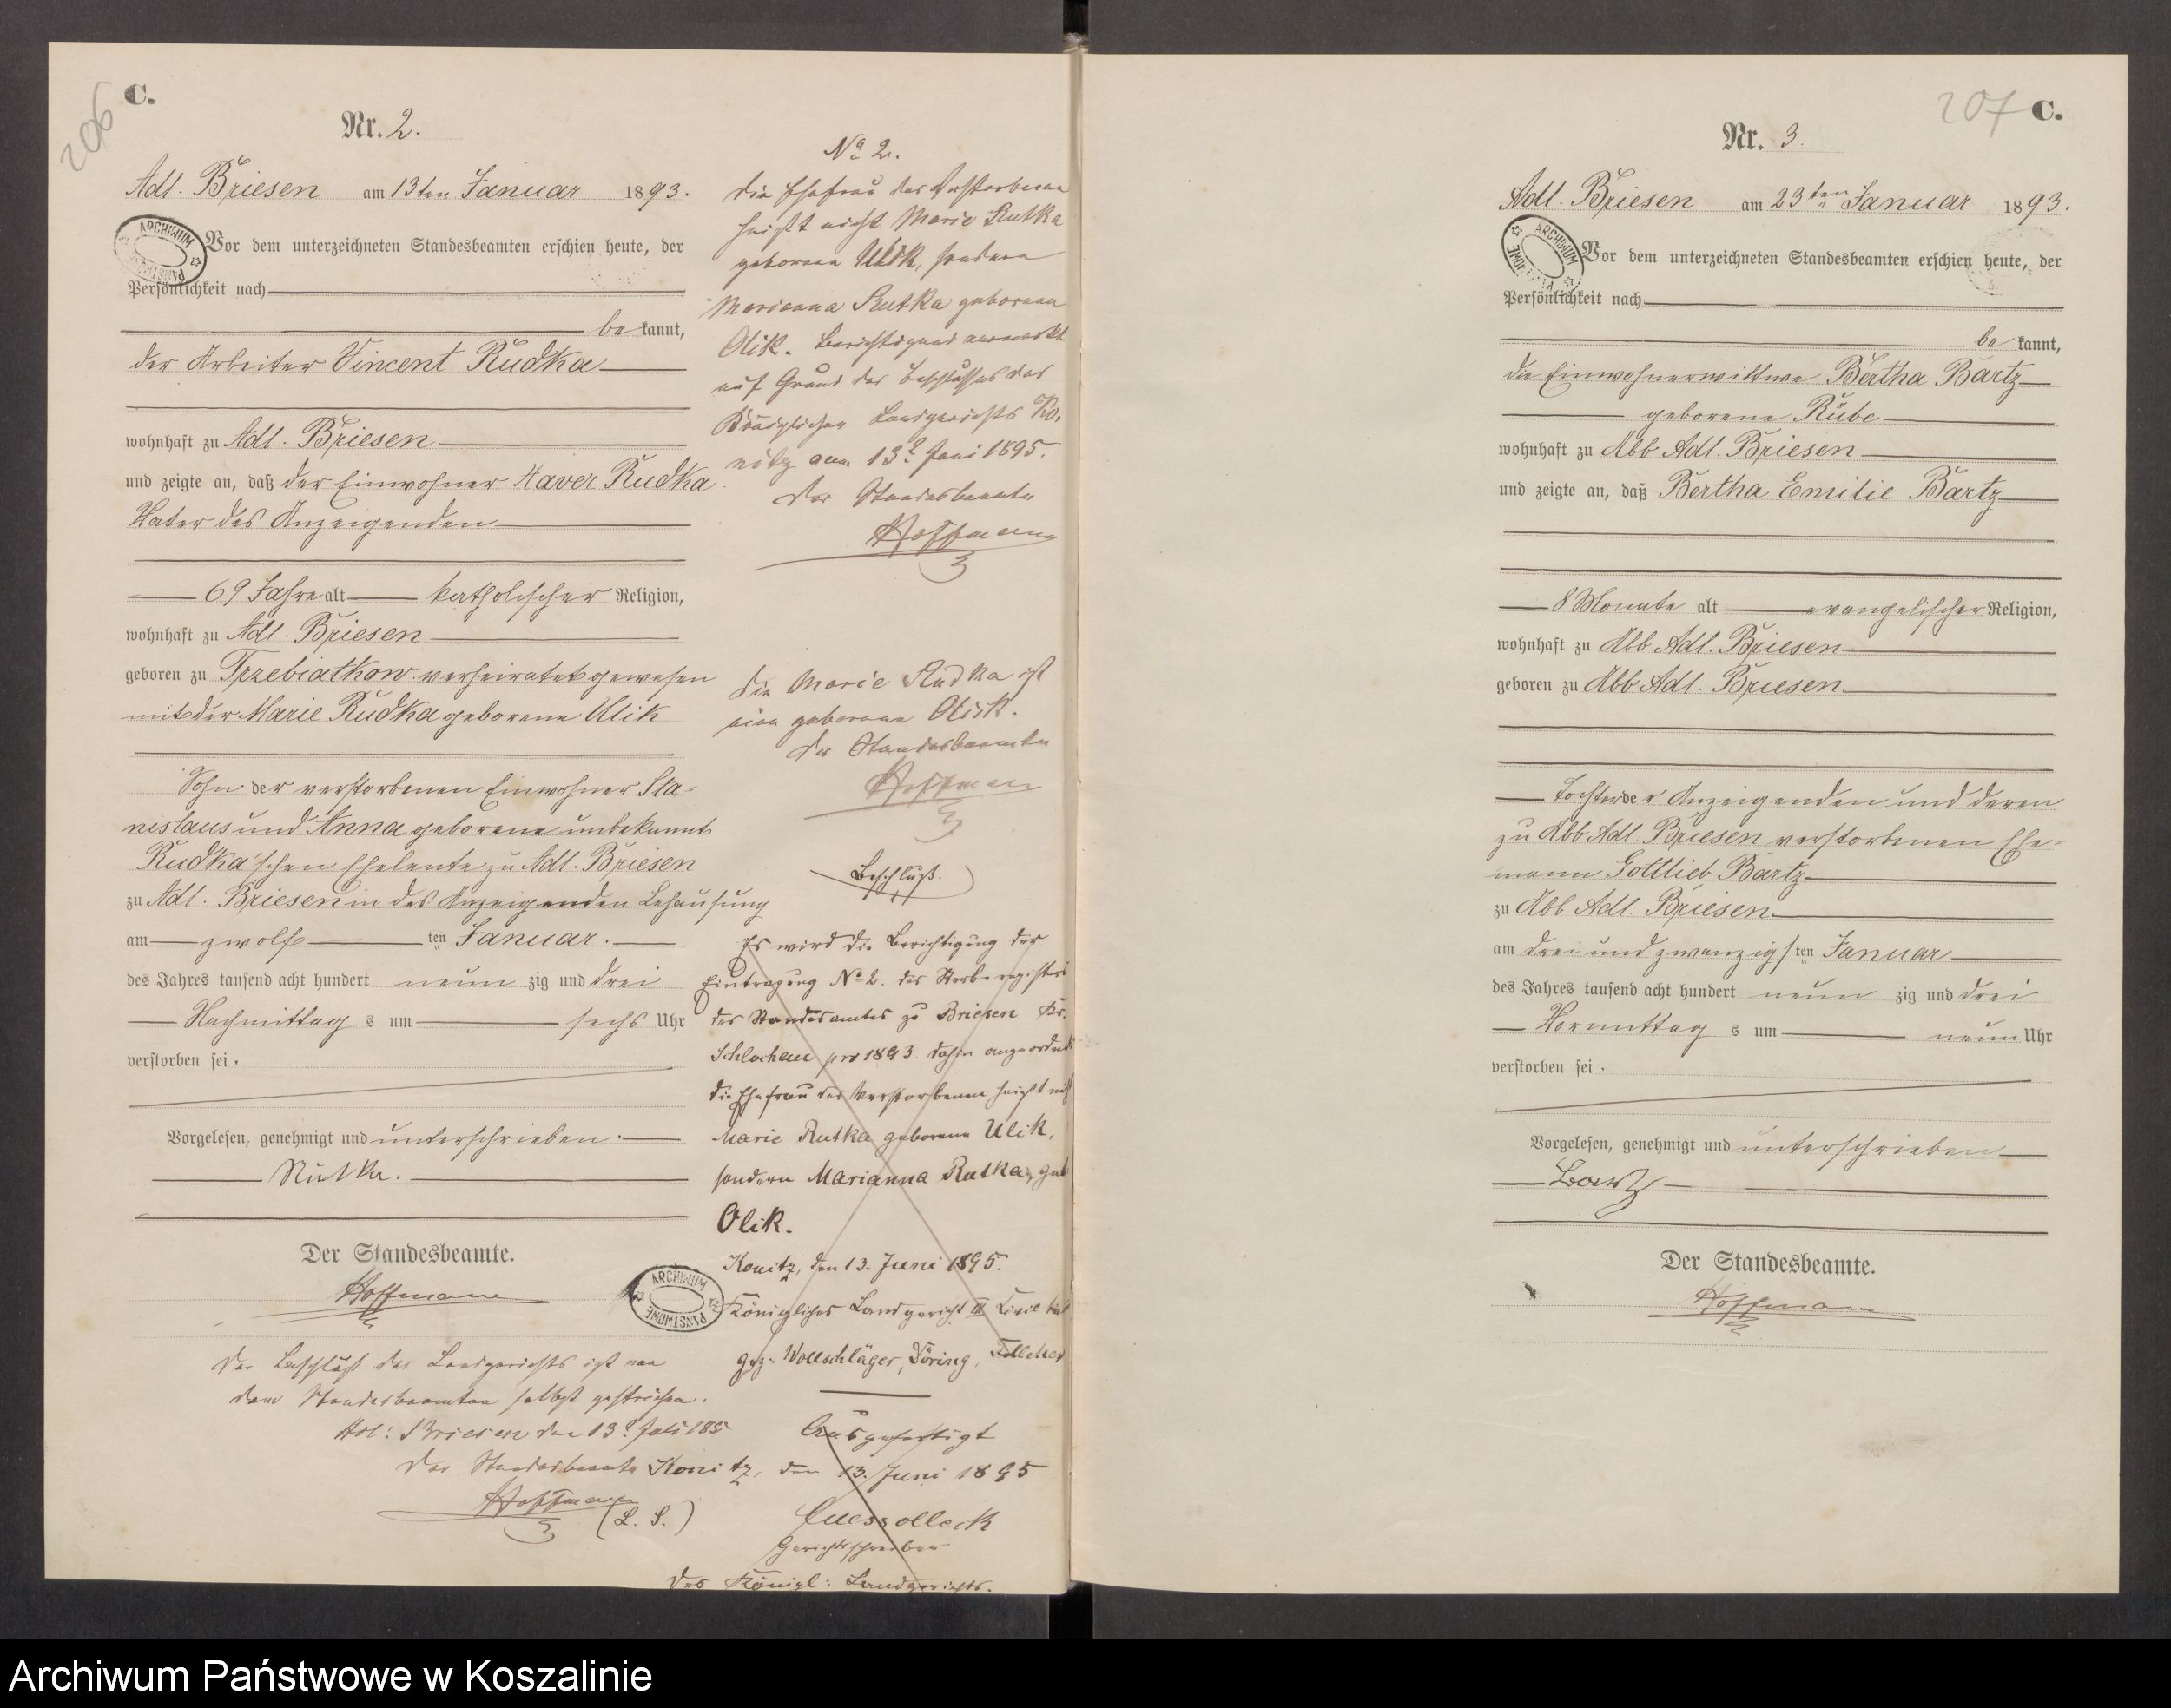 206
C.
Nr. 2.
Adl. Briesen am 13ten Januar 1893.
Vor dem unterzeichneten Standesbeamten erschien heute, der
Persönlichkeit nach
be kannt,
der Arbeiter Vincent Rudka
wohnhaft zu Adl. Briesen
und zeigte an, daß der Einwohner Xaver Rudka
Vater des Anzeigenden
69 Jahre alt katholischer Religion,
wohnhaft zu Adl. Briesen
geboren zu Trzebiatkow verheiratet gewesen
mit der Marie Rudka geborene Ulik
Sohn der verstorbenen Einwohner Sta-
nislaus und Anna geborene unbekannt
Rudka'schen Eheleute zu Adl. Briesen
zu Adl. Briesen in des Anzeigenden Behausung
am zwölf ten Januar.
des Jahres tausend acht hundert neun zig und drei
Nachmittag s um sechs Uhr
verstorben sei.
Vorgelesen, genehmigt und unterschrieben.
Rutka.
Der Standesbeamte.
Hoffmann
ARCHIWUM PAŃSTWOWE
Der Beschluß des Landgerichts ist von
dem Standesbeamten selbst gestrichen.
Adl. Briesen den 13. Juli 189
Der Standesbeamte
Hoffmann
No 2.
Die Ehefrau des Verstorbenen
heißt nicht Marie Rutka
geborene Ulik, sondern
Marianna Rutka geborene
Olik. Berichtigend vermerkt
auf Grund des Beschlusses des
Königlichen Landgerichts Ko-
nitz vom 13. Juni 1895.
Der Standesbeamte
Hoffmann
Die Marie Rudka ist
eine geborene Olik.
Der Standesbeamte
Hoffmann
Beschluß.
Es wird die Berichtigung der
Eintragung No 2. des Sterberegisters
des Standesamtes zu Briesen Kr.
Schlochau pro 1893 dahin angeordnet
die Ehefrau des Verstorbenen heißt nicht
Marie Rutka geborene Ulik,
sondern Marianna Rutka, geb
Olik.
Konitz, den 13. Juni 1895.
Königliches Landgericht III Civil
gez: Wollschläger, Döring,
Ausgefertigt
Konitz, den 13. Juni 1895
(L. S.)
Gerichtsschreiber
des Königl: Landgerichts.
207 C.
Nr. 3.
Adl. Briesen am 23ten Januar 1893.
Vor dem unterzeichneten Standesbeamten erschien heute, der
Persönlichkeit nach
be kannt,
die Einwohnerwittwe Bertha Bartz
geborene Rübe
wohnhaft zu Abb Adl. Briesen
und zeigte an, daß Bertha Emilie Bartz
8 Monate alt evangelischer Religion,
wohnhaft zu Abb Adl. Briesen
geboren zu Abb Adl. Briesen
Tochter der Anzeigenden und deren
zu Abb Adl. Briesen verstorbenen Ehe-
mann Gottlieb Bartz
zu Abb Adl. Briesen
am drei und zwanzigsten Januar
des Jahres tausend acht hundert neun zig und drei
Vormittag s um neun Uhr
verstorben sei.
Vorgelesen, genehmigt und unterschrieben
Bartz
Der Standesbeamte.
Hoffmann
Archiwum Państwowe w Koszalinie